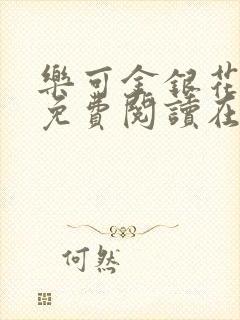 樂可金銀花
免費閱讀在
何然